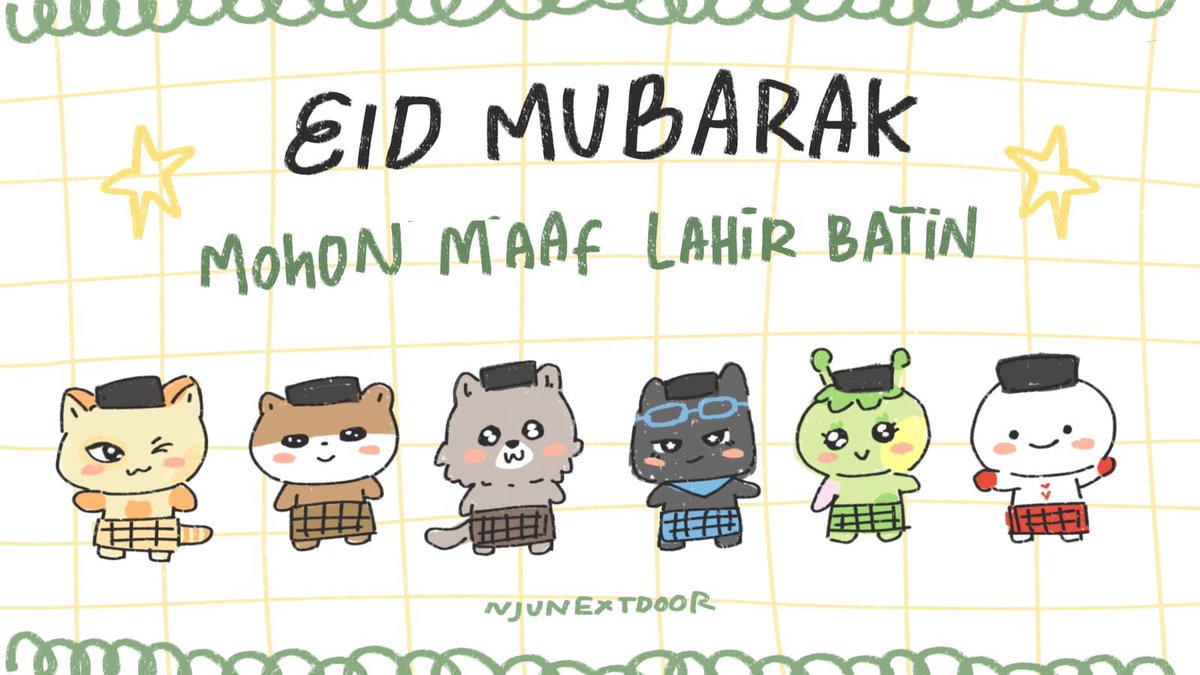 EID MUBARAK
MOHON MAAF LAHIR BATIN
NJUNEXTDOOR